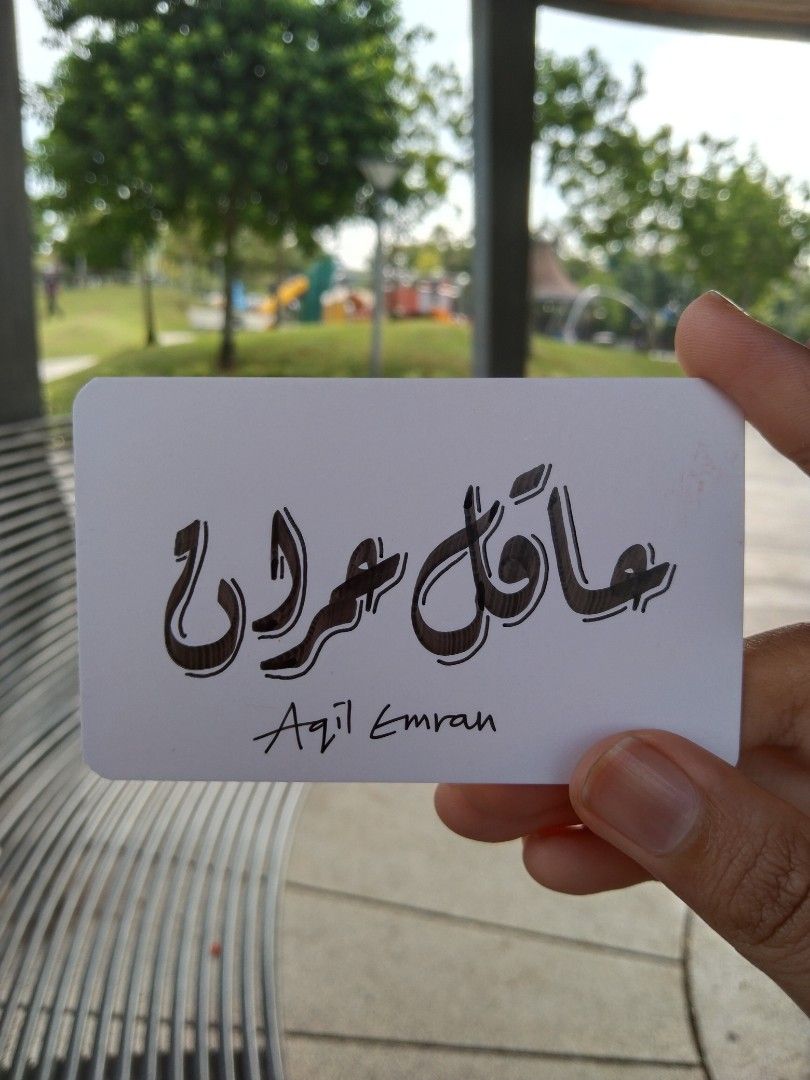 عاقل عمران
Aqil Emran